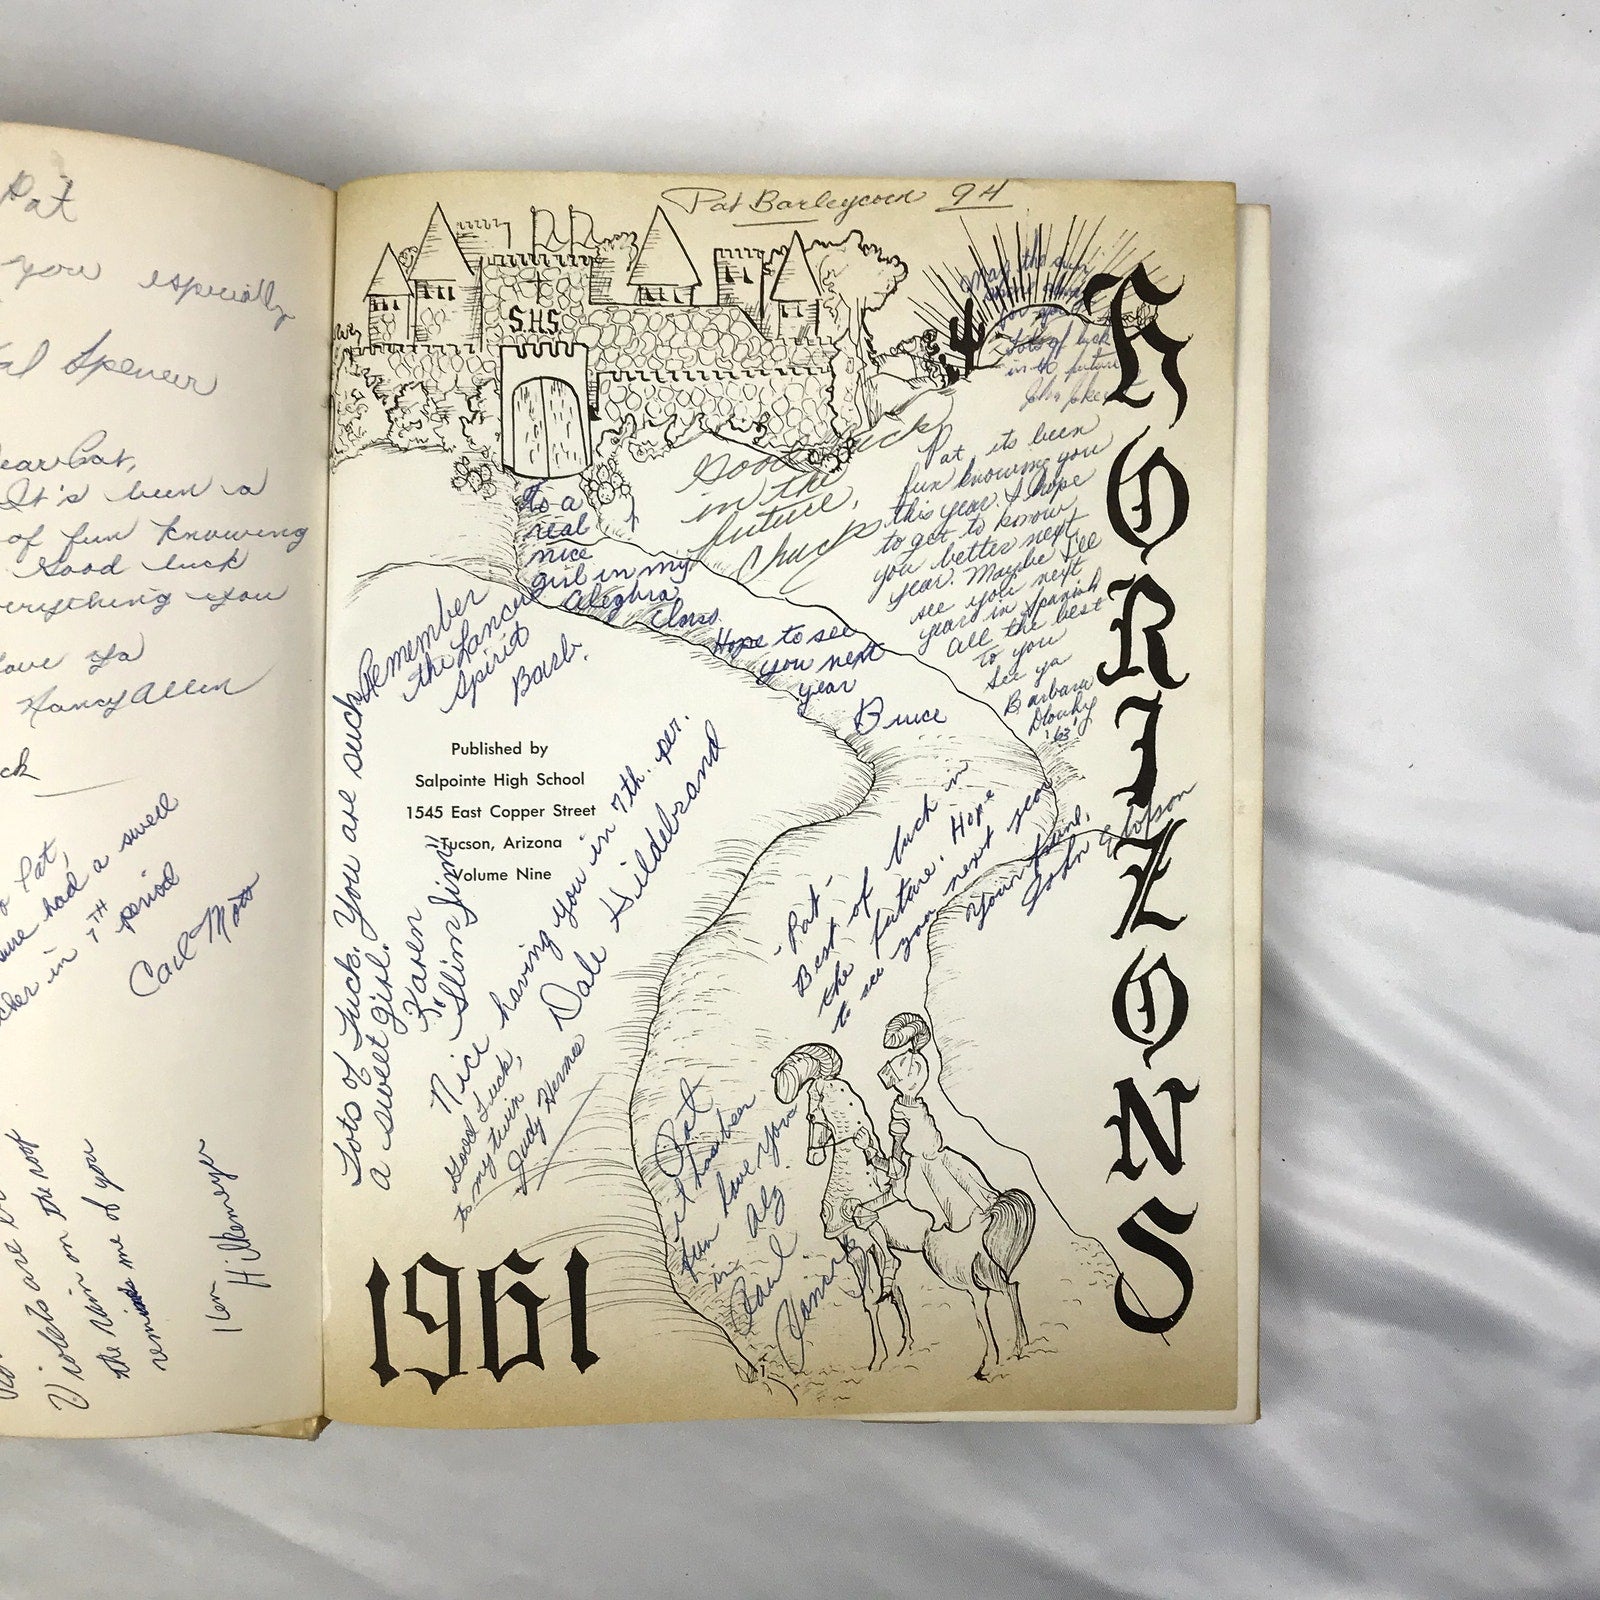 Pat
you especially
Spencer
Dear Pat,
It's been a
of fun knowing
Good luck
everything you
Love ya
Nancy Allen
Pat,
sure had a swell
in 7TH period
Carl
Violets are
on the roof
the
reminds me of you
Ken Hilkemeyer
Pat Barleycorn 9H
S.H.S.
May the sun
Lots of luck
in the future
John
HORIZONS
Good luck
in the
future,
Chuck
Pat its been
fun knowing you
this year. I hope
to get to know
you better next
year. Maybe I'll
see you next
year in Spanish
All the best
to you
See ya
Barbara
Dlouhy
'63'
To a
real
nice
girl in my
Aleghra
Class.
Hope to see
you next
year
Bruce
Remember
the Lancer
spirit
Barb.
Published by
Salpointe High School
1545 East Copper Street
Tucson, Arizona
Volume Nine
Lots of Luck. You are such
a sweet girl.
Karen
"Slim Jim"
Nice having you in 7th. per.
Dale Hildebrand
Good Luck,
to my twin
Judy Hermes
-Pat-
Best of luck in
the future. Hope
to see you next year
Your friend,
John
Pat
it has been
fun have you
in Alg
Paul
1961